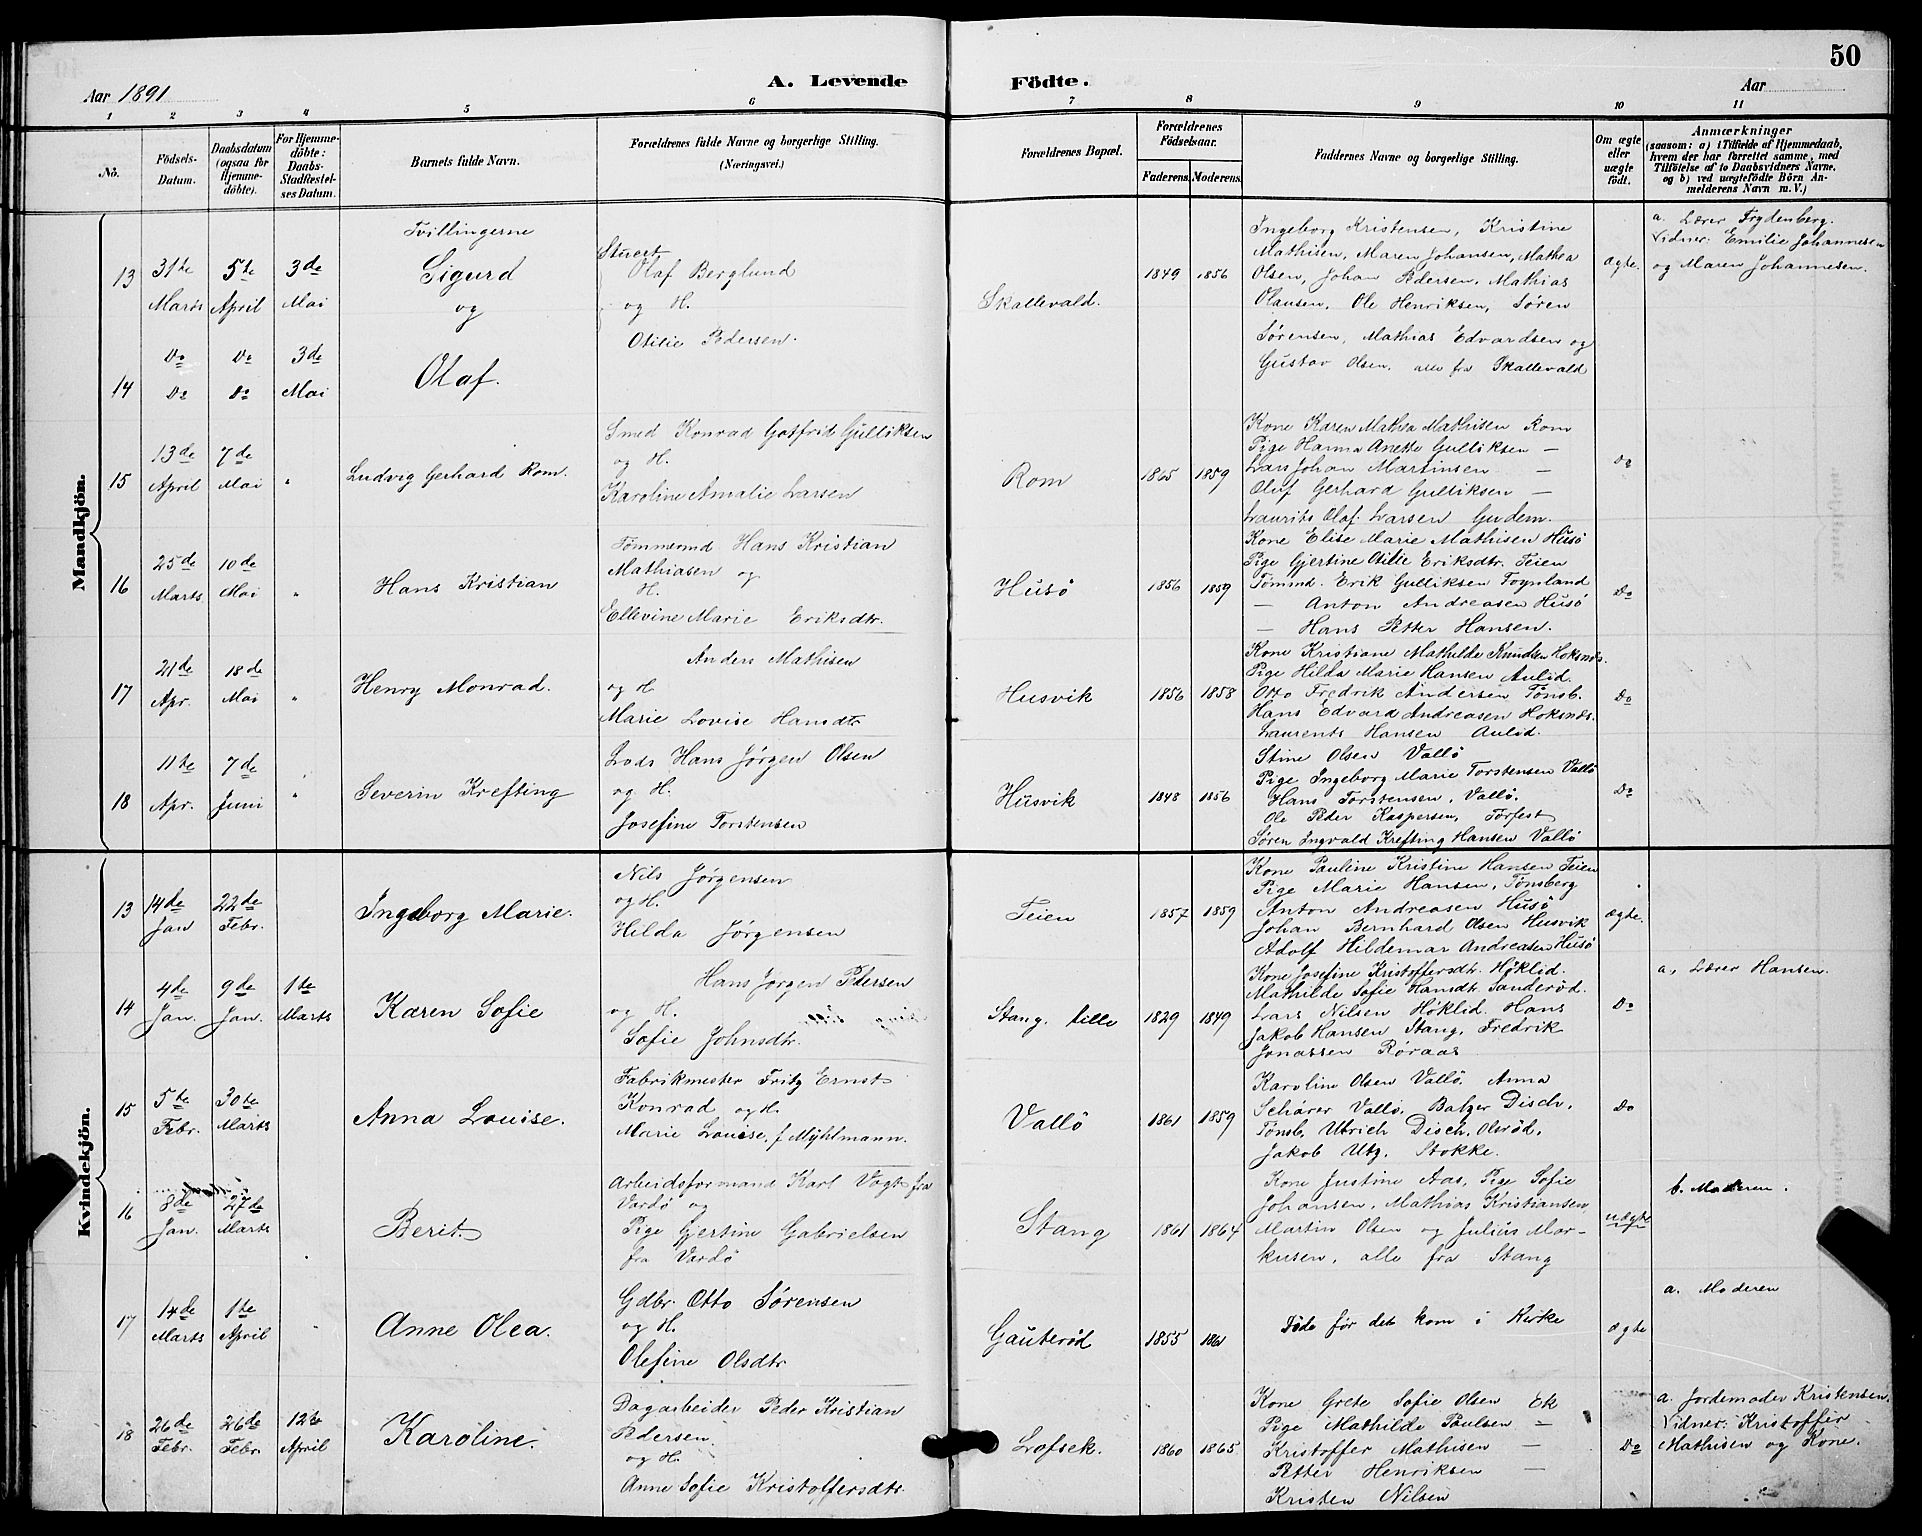 50
Aar 1891
A. Levende Födte.
Aar
1 2 3 4 5 6 7 8 9 10 11
No.
Födsels-Datum.
Daabsdatum (ogsaa for Hjemme-döbte).
For Hjemme-döbte: Daabs-Stadfæstel-ses Datum.
Barnets fulde Navn.
Forældrenes fulde Navne og borgerlige Stilling. (Næringsvei.)
Forældrenes Bopæl.
Forældrenes Födselsaar.
Faderens. Moderens.
Faddernes Navne og borgerlige Stilling.
Om ægte eller uægte födt.
Anmærkninger
(saasom: a) i Tilfælde af Hjemmedaab, hvem der har forrettet samme, med Tilföielse af to Daabsvidners Navne, og b) ved uægtefödte Börn An-melderens Navn m. V.)
Mandkjön.
13
31te Marts
5te April
3de Mai
Tvillingerne
Sigurd
og
Stuert
Olaf Berglund
og H.
Otilie Pedersen.
Skallevald.
1849 1856
Ingeborg Kristensen, Kristine
Mathisen, Maren Johansen, Mathea
Olsen, Johan Pedersen, Mathias
Olausen, Ole Henriksen, Søren
Sørensen, Mathias Edvardsen og
Gustav Olsen, alle fra Skallevald
Ægte.
a. Lærer Frydenberg.
Vidner: Emilie Johannesen
og Maren Johannesen.
14
Do Do
Do Do
3de Mai
Olaf.
15
13de April
7de Mai
"
Ludvig Gerhard Rom.
Smed Konrad Gotfrid Gulliksen
og H.
Karoline Amalie Larsen
Rom
1865 1859
Kone Karen Mathea Mathisen Rom
Pige Hanna Anette Gulliksen —
Lars Johan Martinsen —
Oluf Gerhard Gulliksen —
Laurits Olaf Larsen Gudem.
Do
16
25de Marts
10de Mai
"
Hans Kristian
Tømmermd Hans Kristian
Mathiasen og
H.
Ellevine Marie Eriksdtr.
Husö
1856 1859
Kone Elise Marie Mathisen Husö
Pige Gjertine Otilie Eriksdtr. Teien
Tømmd. Erik Gulliksen Foynland
— Anton Andreasen Husö
— Hans Petter Hansen.
Do
17
21de Apr.
18de Mai
"
Henry Monrad.
Anders Mathisen
og H.
Marie Lovise Hansdtr
Husvik
1856 1858
Kone Kristiane Mathilde Knudsen Hoksnds.
Pige Hilda Marie Hansen Aulid.
Otto Fredrik Andersen Tönsb.
Hans Edvard Andreasen Hoksnds.
Laurents Hansen Aulid.
Do
18
11te Apr.
7de Juni
"
Severin Krefting
Lods Hans Jørgen Olsen
og H.
Josefine Torstensen
Husvik
1848 1856
Stine Olsen Vallö
Pige Ingeborg Marie Torstensen Vallö
Hans Torstensen, Vallö.
Ole Peder Kaspersen, Torfest
Søren Ingvald Krefting Hansen Vallö
Do
Kvindekjön.
13
14de Jan
22de Febr.
Ingeborg Marie.
Nils Jørgensen
og H.
Hilda Jørgensen
Teien
1857 1859
Kone Pauline Kristine Hansen Teien
Pige Marie Hansen, Tønsberg
Anton Andreasen Husö
Johan Bernhard Olsen Husvik
Adolf Hildemar Andreasen Husö
Ægte.
14
4de Jan.
9de Jan.
1te Marts
Karen Sofie
Hans Jørgen Pedersen
og H.
Sofie Johnsdtr.
Stang, lille
1829 1849
Kone Josefine Kristoffersdtr. Höklid.
Mathilde Sofie Hansdtr. Sanderød.
Lars Nilsen Höklid. Hans
Jakob Hansen Stang, Fredrik
Jonassen Røraas
Do
a, Lærer Hansen.
15
5te Febr.
30te Marts
Anna Louise.
Fabrikmester Fritz Ernst
Konrad og H.
Marie Louise, f Mÿhlmann.
Vallö
1861 1859
Karoline Olsen Vallö, Anna
Schärer Vallö. Balzer Disch,
Tönsb, Ulrich Disch, Olsrød,
Jakob Utz, Stokke.
Do
16
8de Jan.
27de Marts
Berit.
Arbeidsformand Karl Vogt fra
Vardø og
Pige Gjertine Gabrielsen
fra Vardø
Stang
1861 1864
Kone Justine Aas, Pige Sofie
Johansen, Mathias Kristiansen,
Martin Olsen og Julius Mar-
kusen, alle fra Stang
uægte
b. Moderen.
17
14de Marts
1te April
"
Anne Olea.
Gdbr. Otto Sørensen
og H.
Olefine Olsdtr
Gauterød
1855 1861
Døde før det kom i Kirke
ægte
a. Moderen
18
26de Febr.
26de Febr.
12te April
Karoline.
Dagarbeider Peder Kristian
Pedersen
og H.
Anne Sofie Kristoffersdtr
Lofsek.
1860 1865
Kone Grete Sofie Olsen Ek
Pige Mathilde Paulsen —
Kristoffer Mathisen —
Petter Henriksen —
Kristen Nilsen
Do
a. Jordemoder Kristensen.
Vidner: Kristoffer
Mathisen og Kone.